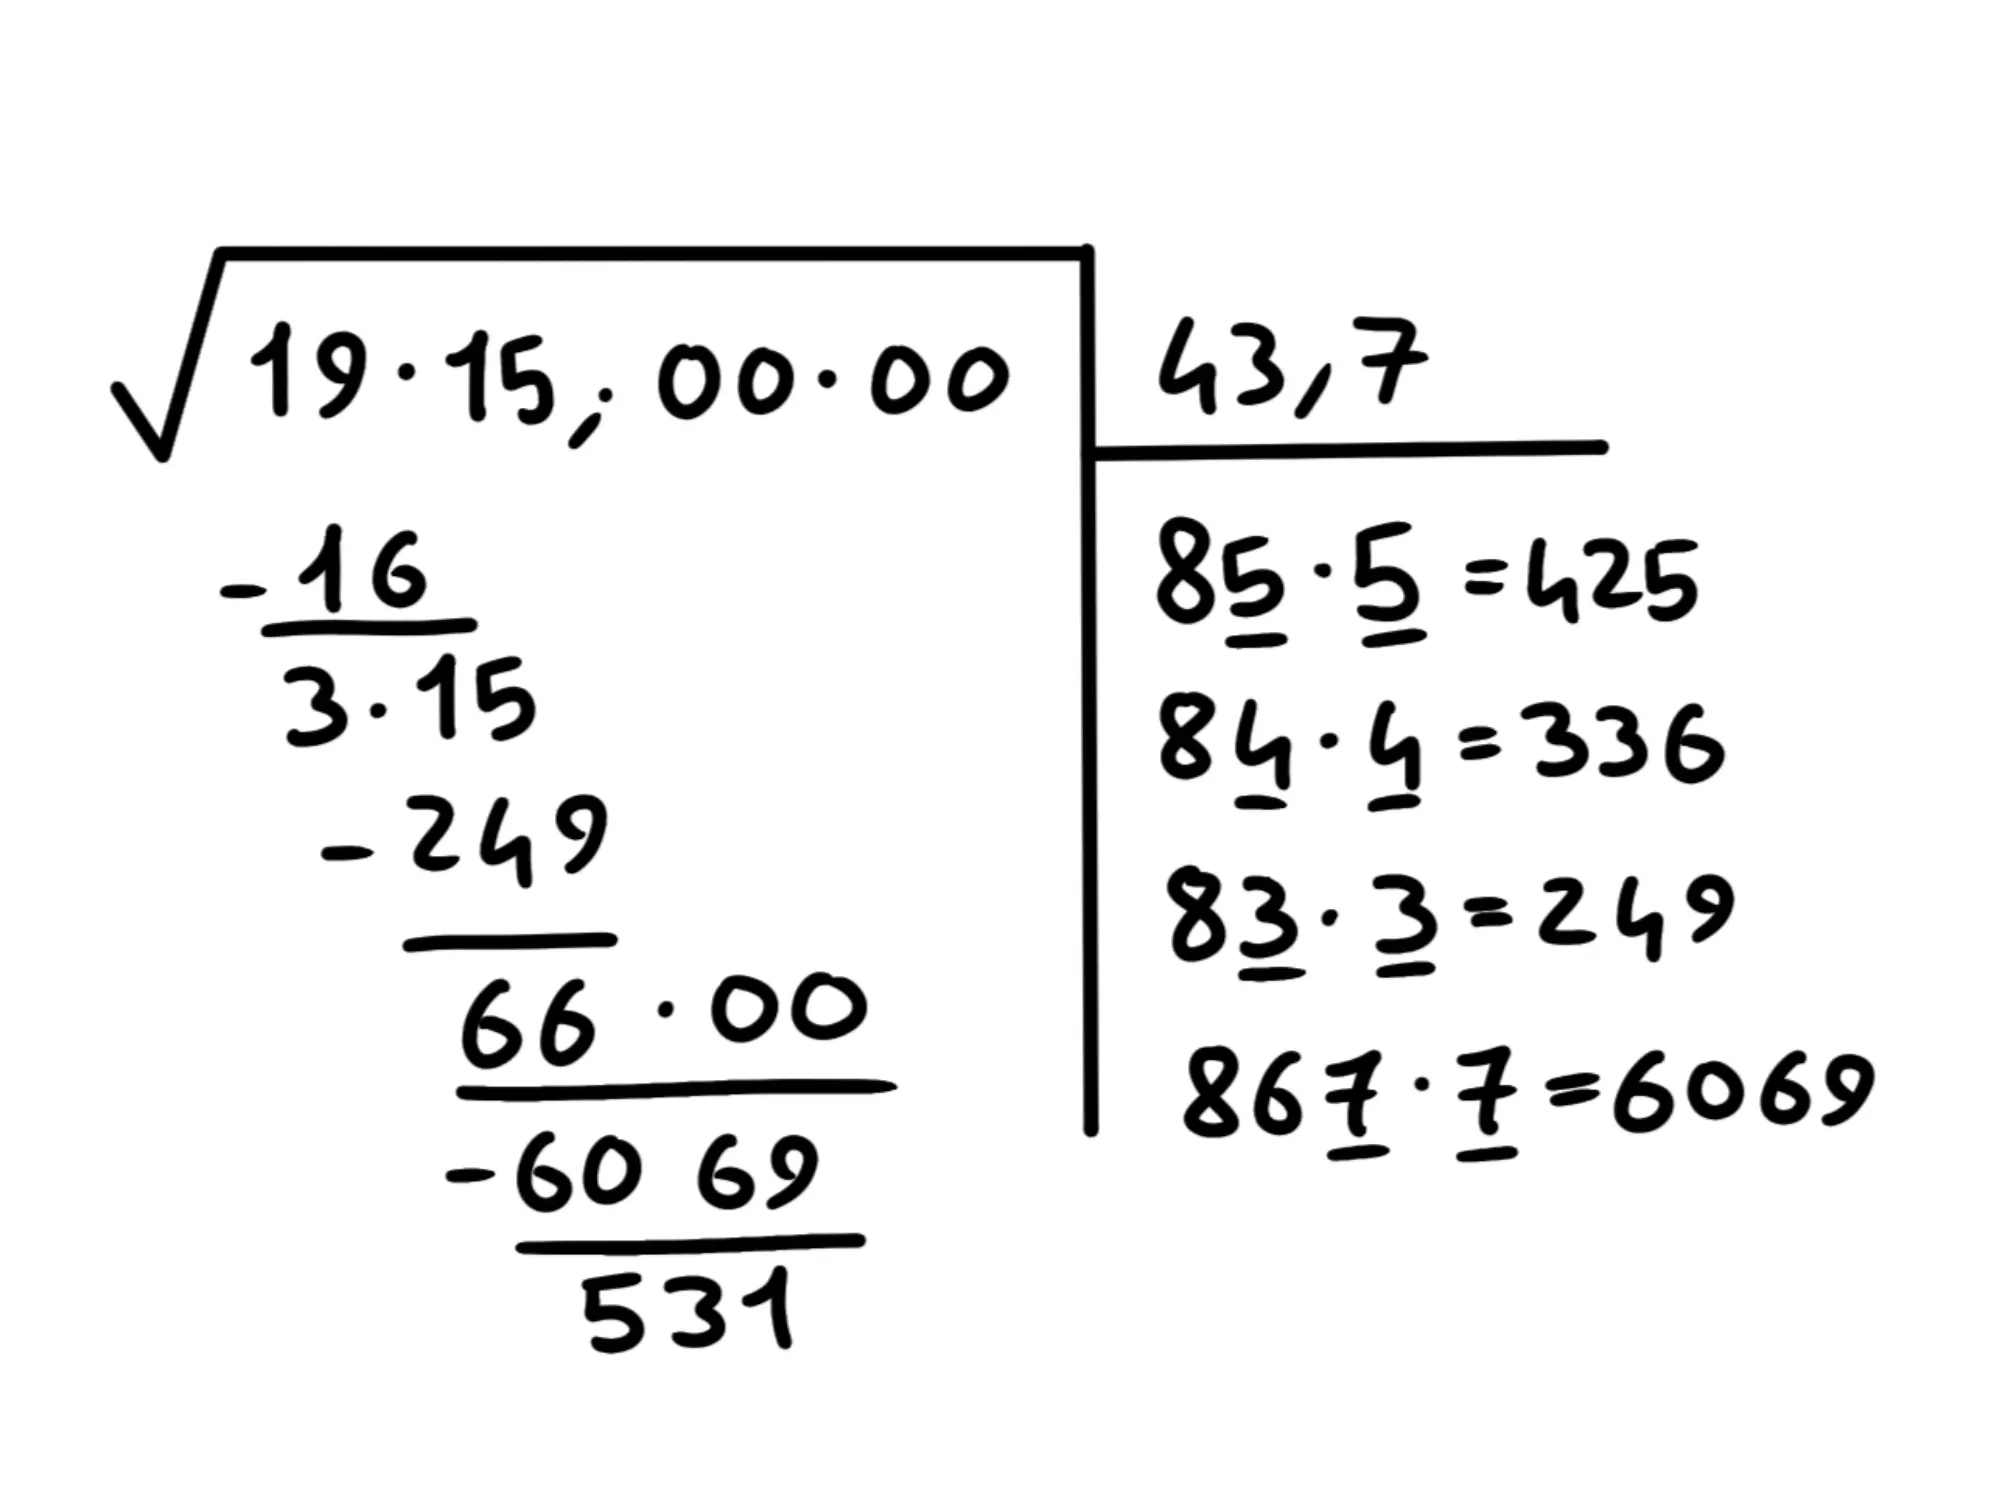 √19·15,·00·00
43,7
-16
3·15
-249
66·00
-60 69
531
85·5=425
84·4=336
83·3=249
867·7=6069